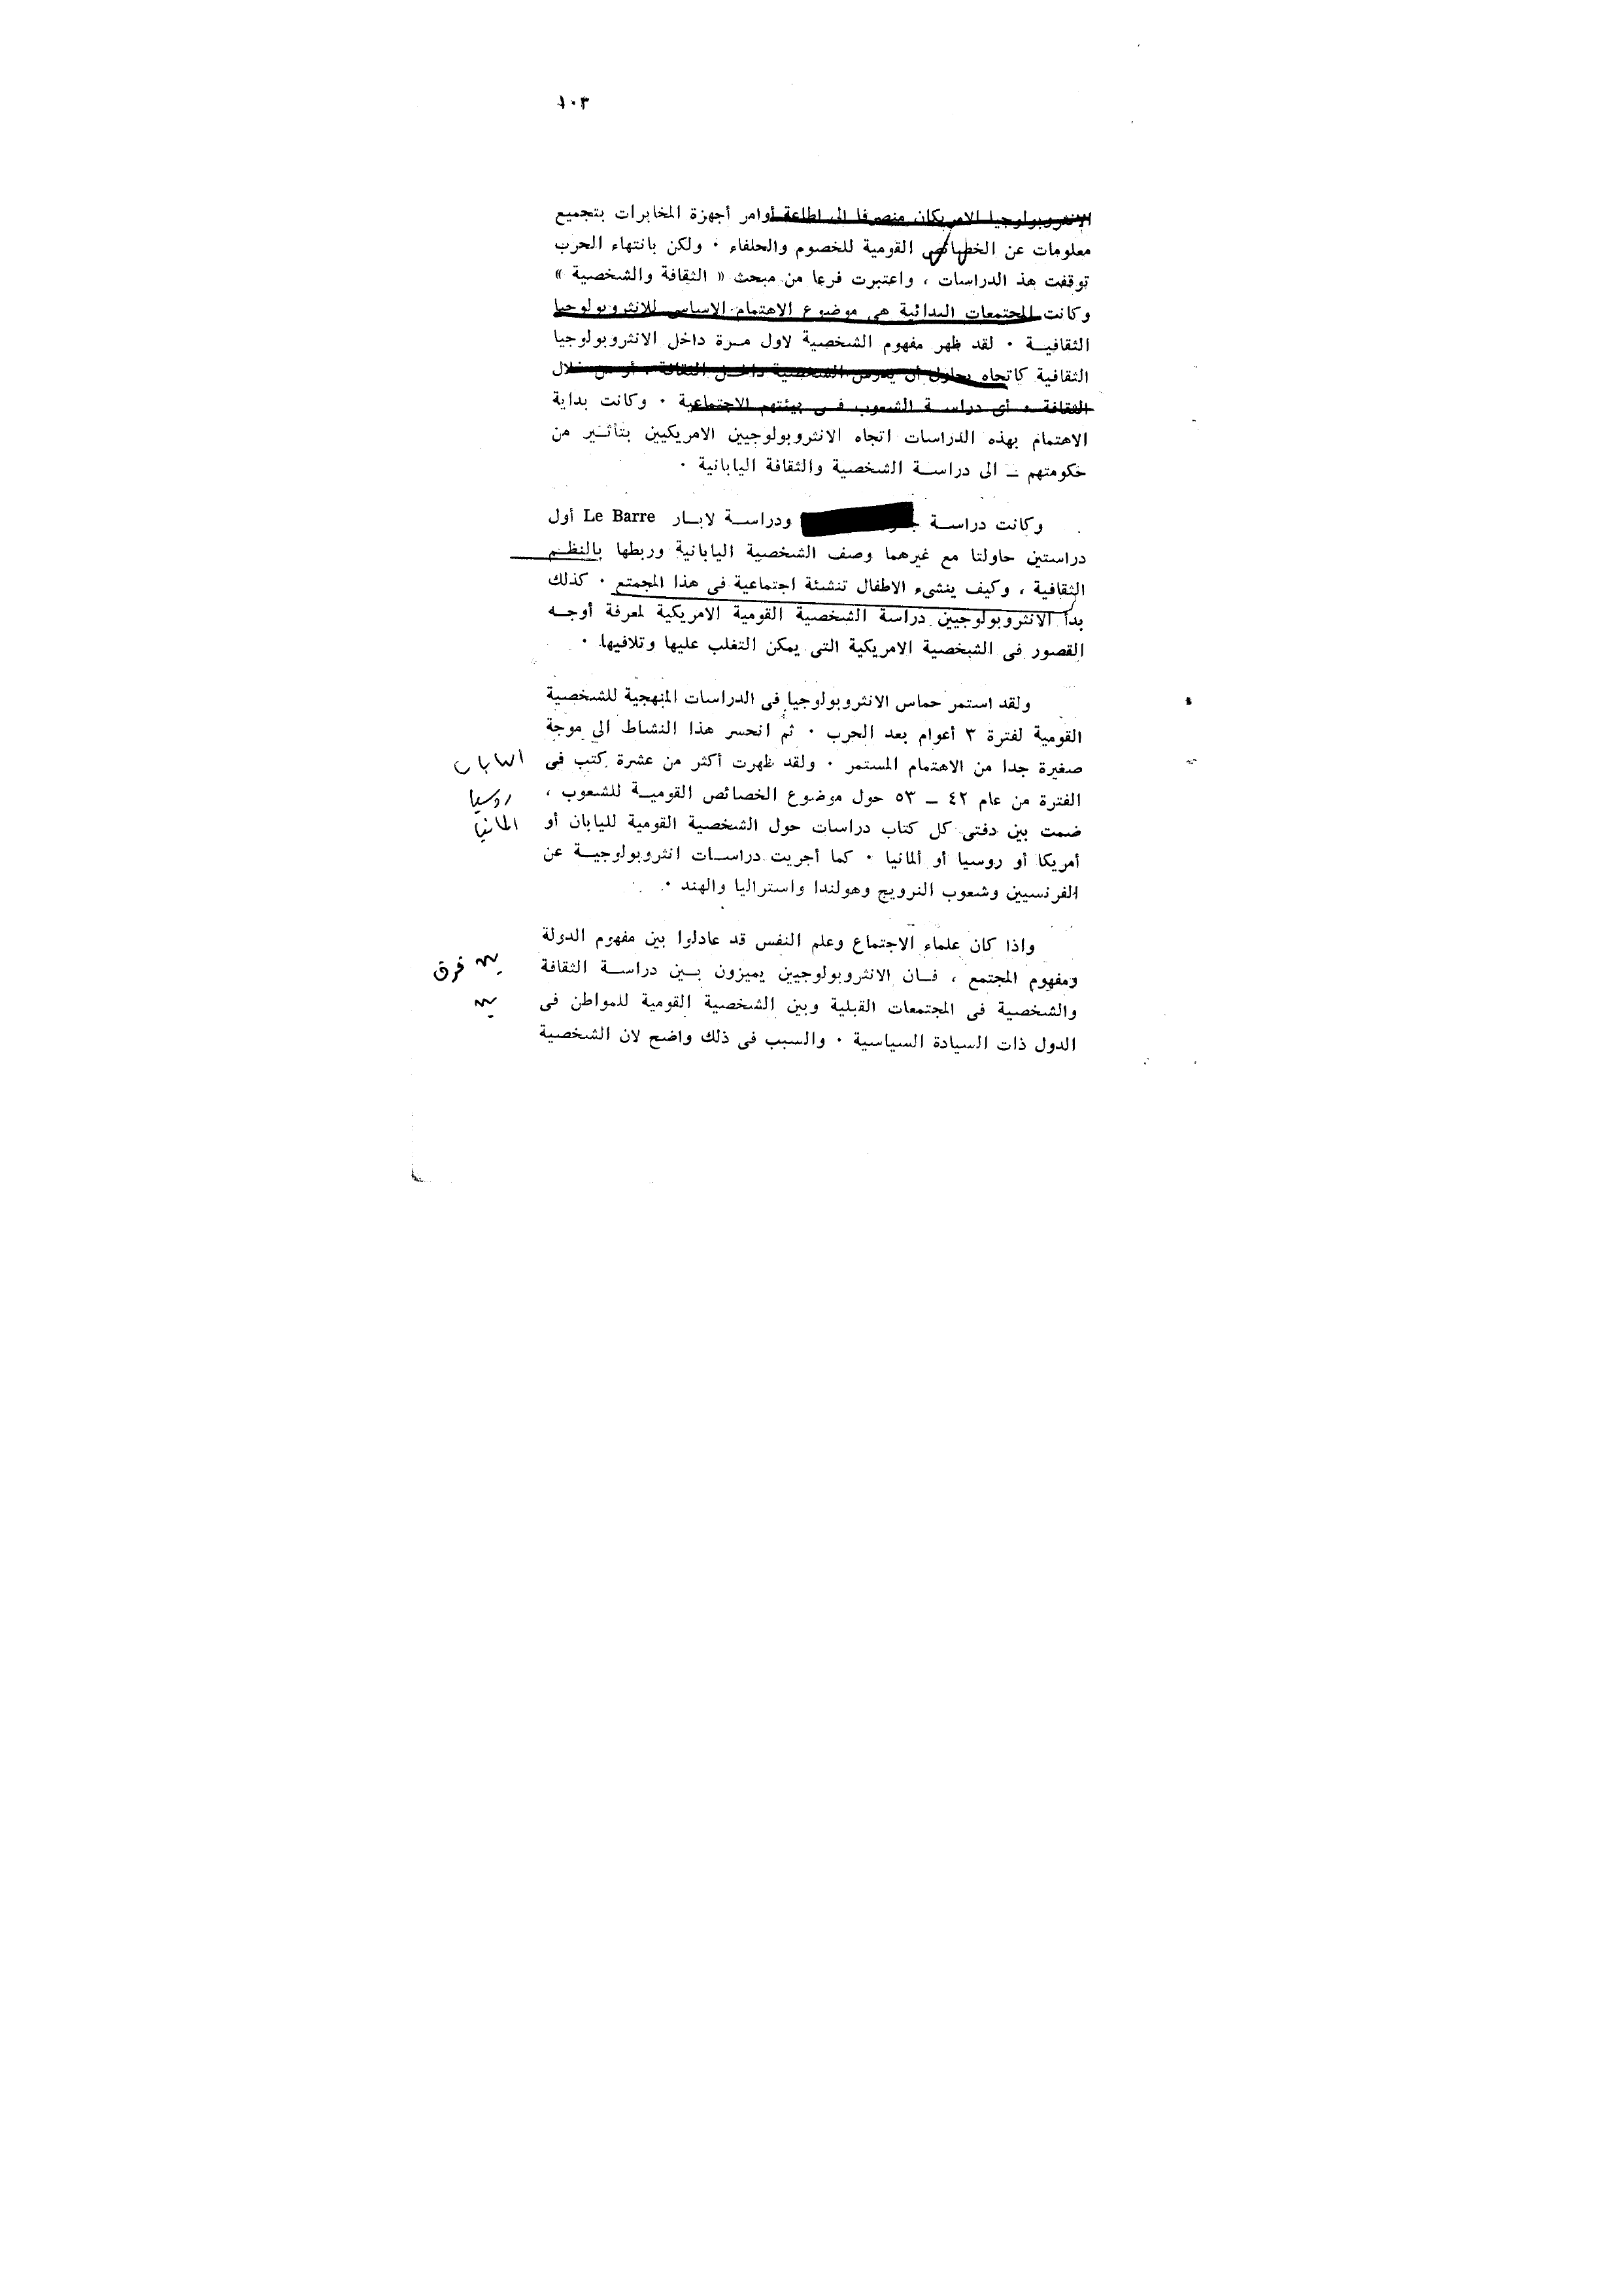 ١٠٣
الانثروبولوجيا الامريكان منصرفا الى اطاعة أوامر أجهزة المخابرات بتجميع
معلومات عن الخصائص القومية للخصوم والحلفاء ٠ ولكن بانتهاء الحرب
توقفت هذ الدراسات ، واعتبرت فرعا من مبحث « الثقافة والشخصية »
وكانت المجتمعات البدائية هى موضوع الاهتمام الاساسى للانثروبولوجيا
الثقافية ٠ لقد ظهر مفهوم الشخصية لاول مرة داخل الانثروبولوجيا
الثقافية كاتجاه يحاول أن يدرس الشخصية داخل الثقافة ، أو من خلال
الثقافة ٠ أى دراسة الشعوب فى بيئتهم الاجتماعية ٠ وكانت بداية
الاهتمام بهذه الدراسات اتجاه الانثروبولوجيين الامريكيين بتأثير من
حكومتهم ــ الى دراسة الشخصية والثقافة اليابانية ٠
وكانت دراسة ودراسة لابار Le Barre أول
دراستين حاولتا مع غيرهما وصف الشخصية اليابانية وربطها بالنظم
الثقافية ، وكيف ينشىء الاطفال تنشئة اجتماعية فى هذا المجمتع ٠ كذلك
بدأ الانثروبولوجيين دراسة الشخصية القومية الامريكية لمعرفة أوجه
القصور فى الشخصية الامريكية التى يمكن التغلب عليها وتلافيها ٠
ولقد استمر حماس الانثروبولوجيا فى الدراسات المنهجية للشخصية
القومية لفترة ٣ أعوام بعد الحرب ٠ ثم انحسر هذا النشاط الى موجة
صغيرة جدا من الاهتمام المستمر ٠ ولقد ظهرت أكثر من عشرة كتب فى
اليابان
الفترة من عام ٤٢ ــ ٥٣ حول موضوع الخصائص القومية للشعوب ،
روسيا
ضمت بين دفتى كل كتاب دراسات حول الشخصية القومية لليابان أو
المانيا
أمريكا أو روسيا أو ألمانيا ٠ كما أجريت دراسات انثروبولوجية عن
الفرنسيين وشعوب النرويج وهولندا واستراليا والهند ٠
واذا كان علماء الاجتماع وعلم النفس قد عادلوا بين مفهوم الدولة
ومفهوم المجتمع ، فان الانثروبولوجيين يميزون بين دراسة الثقافة
فرق
والشخصية فى المجتمعات القبلية وبين الشخصية القومية للمواطن فى
الدول ذات السيادة السياسية ٠ والسبب فى ذلك واضح لان الشخصية